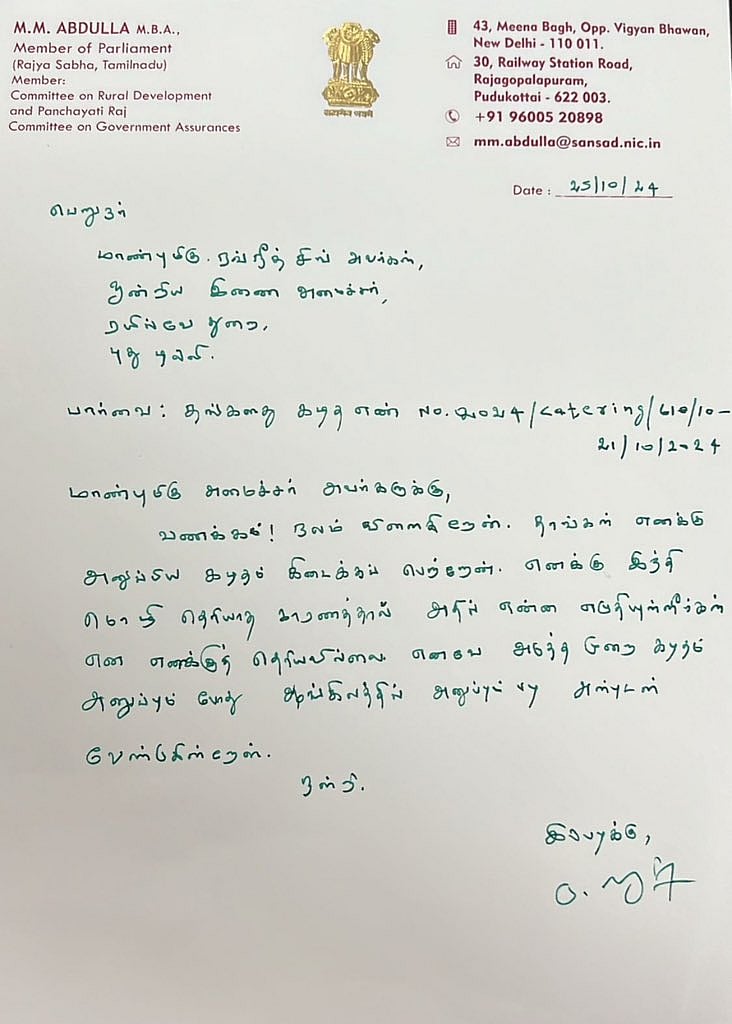 M.M. ABDULLA M.B.A.,
Member of Parliament
(Rajya Sabha, Tamilnadu)
Member:
Committee on Rural Development
and Panchayati Raj
Committee on Government Assurances
सत्यमेव जयते
43, Meena Bagh, Opp. Vigyan Bhawan,
New Delhi - 110 011.
30, Railway Station Road,
Rajagopalapuram,
Pudukottai - 622 003.
+91 96005 20898
mm.abdulla@sansad.nic.in
Date : 25/10/24
பெறுநர்
மாண்புமிகு. ரவ்நீத் சிங் அவர்கள்,
ஒன்றிய இணை அமைச்சர்,
ரயில்வே துறை,
புது டில்லி.
பார்வை : தங்களது கடித எண் No. 2024/Catering/610/10-
21/10/2024
மாண்புமிகு அமைச்சர் அவர்களுக்கு,
வணக்கம்! நலம் விளைகிறேன். தாங்கள் எனக்கு
அனுப்பிய கடிதம் கிடைக்கப் பெற்றேன். எனக்கு இந்தி
மொழி தெரியாத காரணத்தால் அதில் என்ன எழுதியுள்ளீர்கள்
என எனக்குத் தெரியவில்லை. எனவே அடுத்த முறை கடிதம்
அனுப்பும் போது ஆங்கிலத்தில் அனுப்பும் படி அன்புடன்
வேண்டுகின்றேன்.
நன்றி.
இப்படிக்கு,